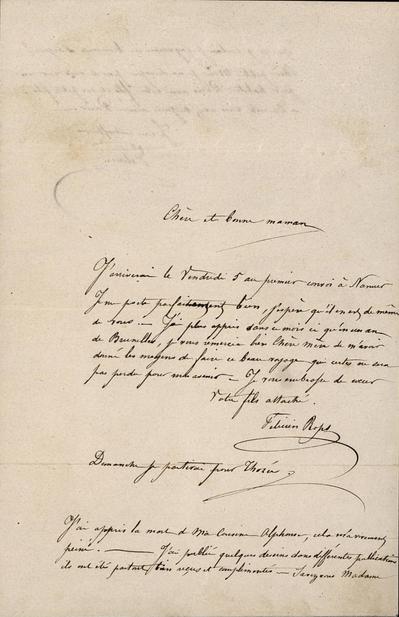 Chère et bonne maman
J'arriverai le Vendredi 5 au premier convoi à Namur
Je me porte parfaitement bien, j'espère qu'il en est de même
de vous. — J'ai plus appris dans ce mois ci qu'en un an
de Bruxelles, je vous remercie bien Chère Mère de m'avoir
donné les moyens de faire ce beau voyage qui certes ne sera
pas perdu pour mon avenir — Je vous embrasse de coeur
Votre fils attaché
Félicien Rops
Dimanche je partirai pour Thozée
J'ai appris la mort d Ma Cousine Alphonse, cela m'a vraiment
peiné. — J'ai publié quelques dessins dans différentes publications
ils ont été partout bien reçus et complimentés — Madame